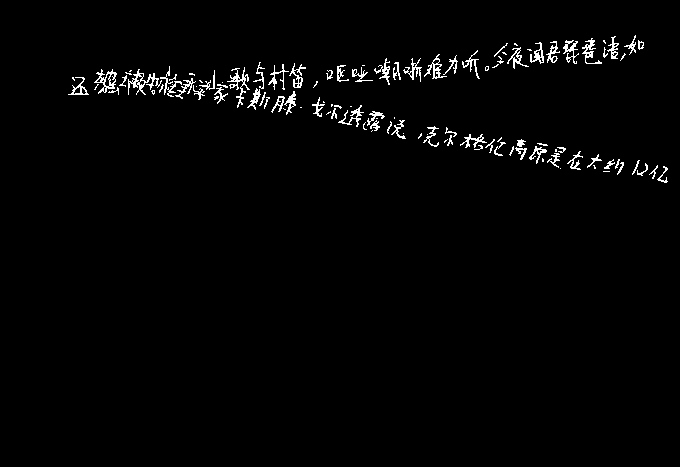 歌与村笛，呕哑嘲哳难为听。今夜闻君琵琶语，如
家卡斯滕·戈尔透露说，克尔格伦高原是在大约12亿